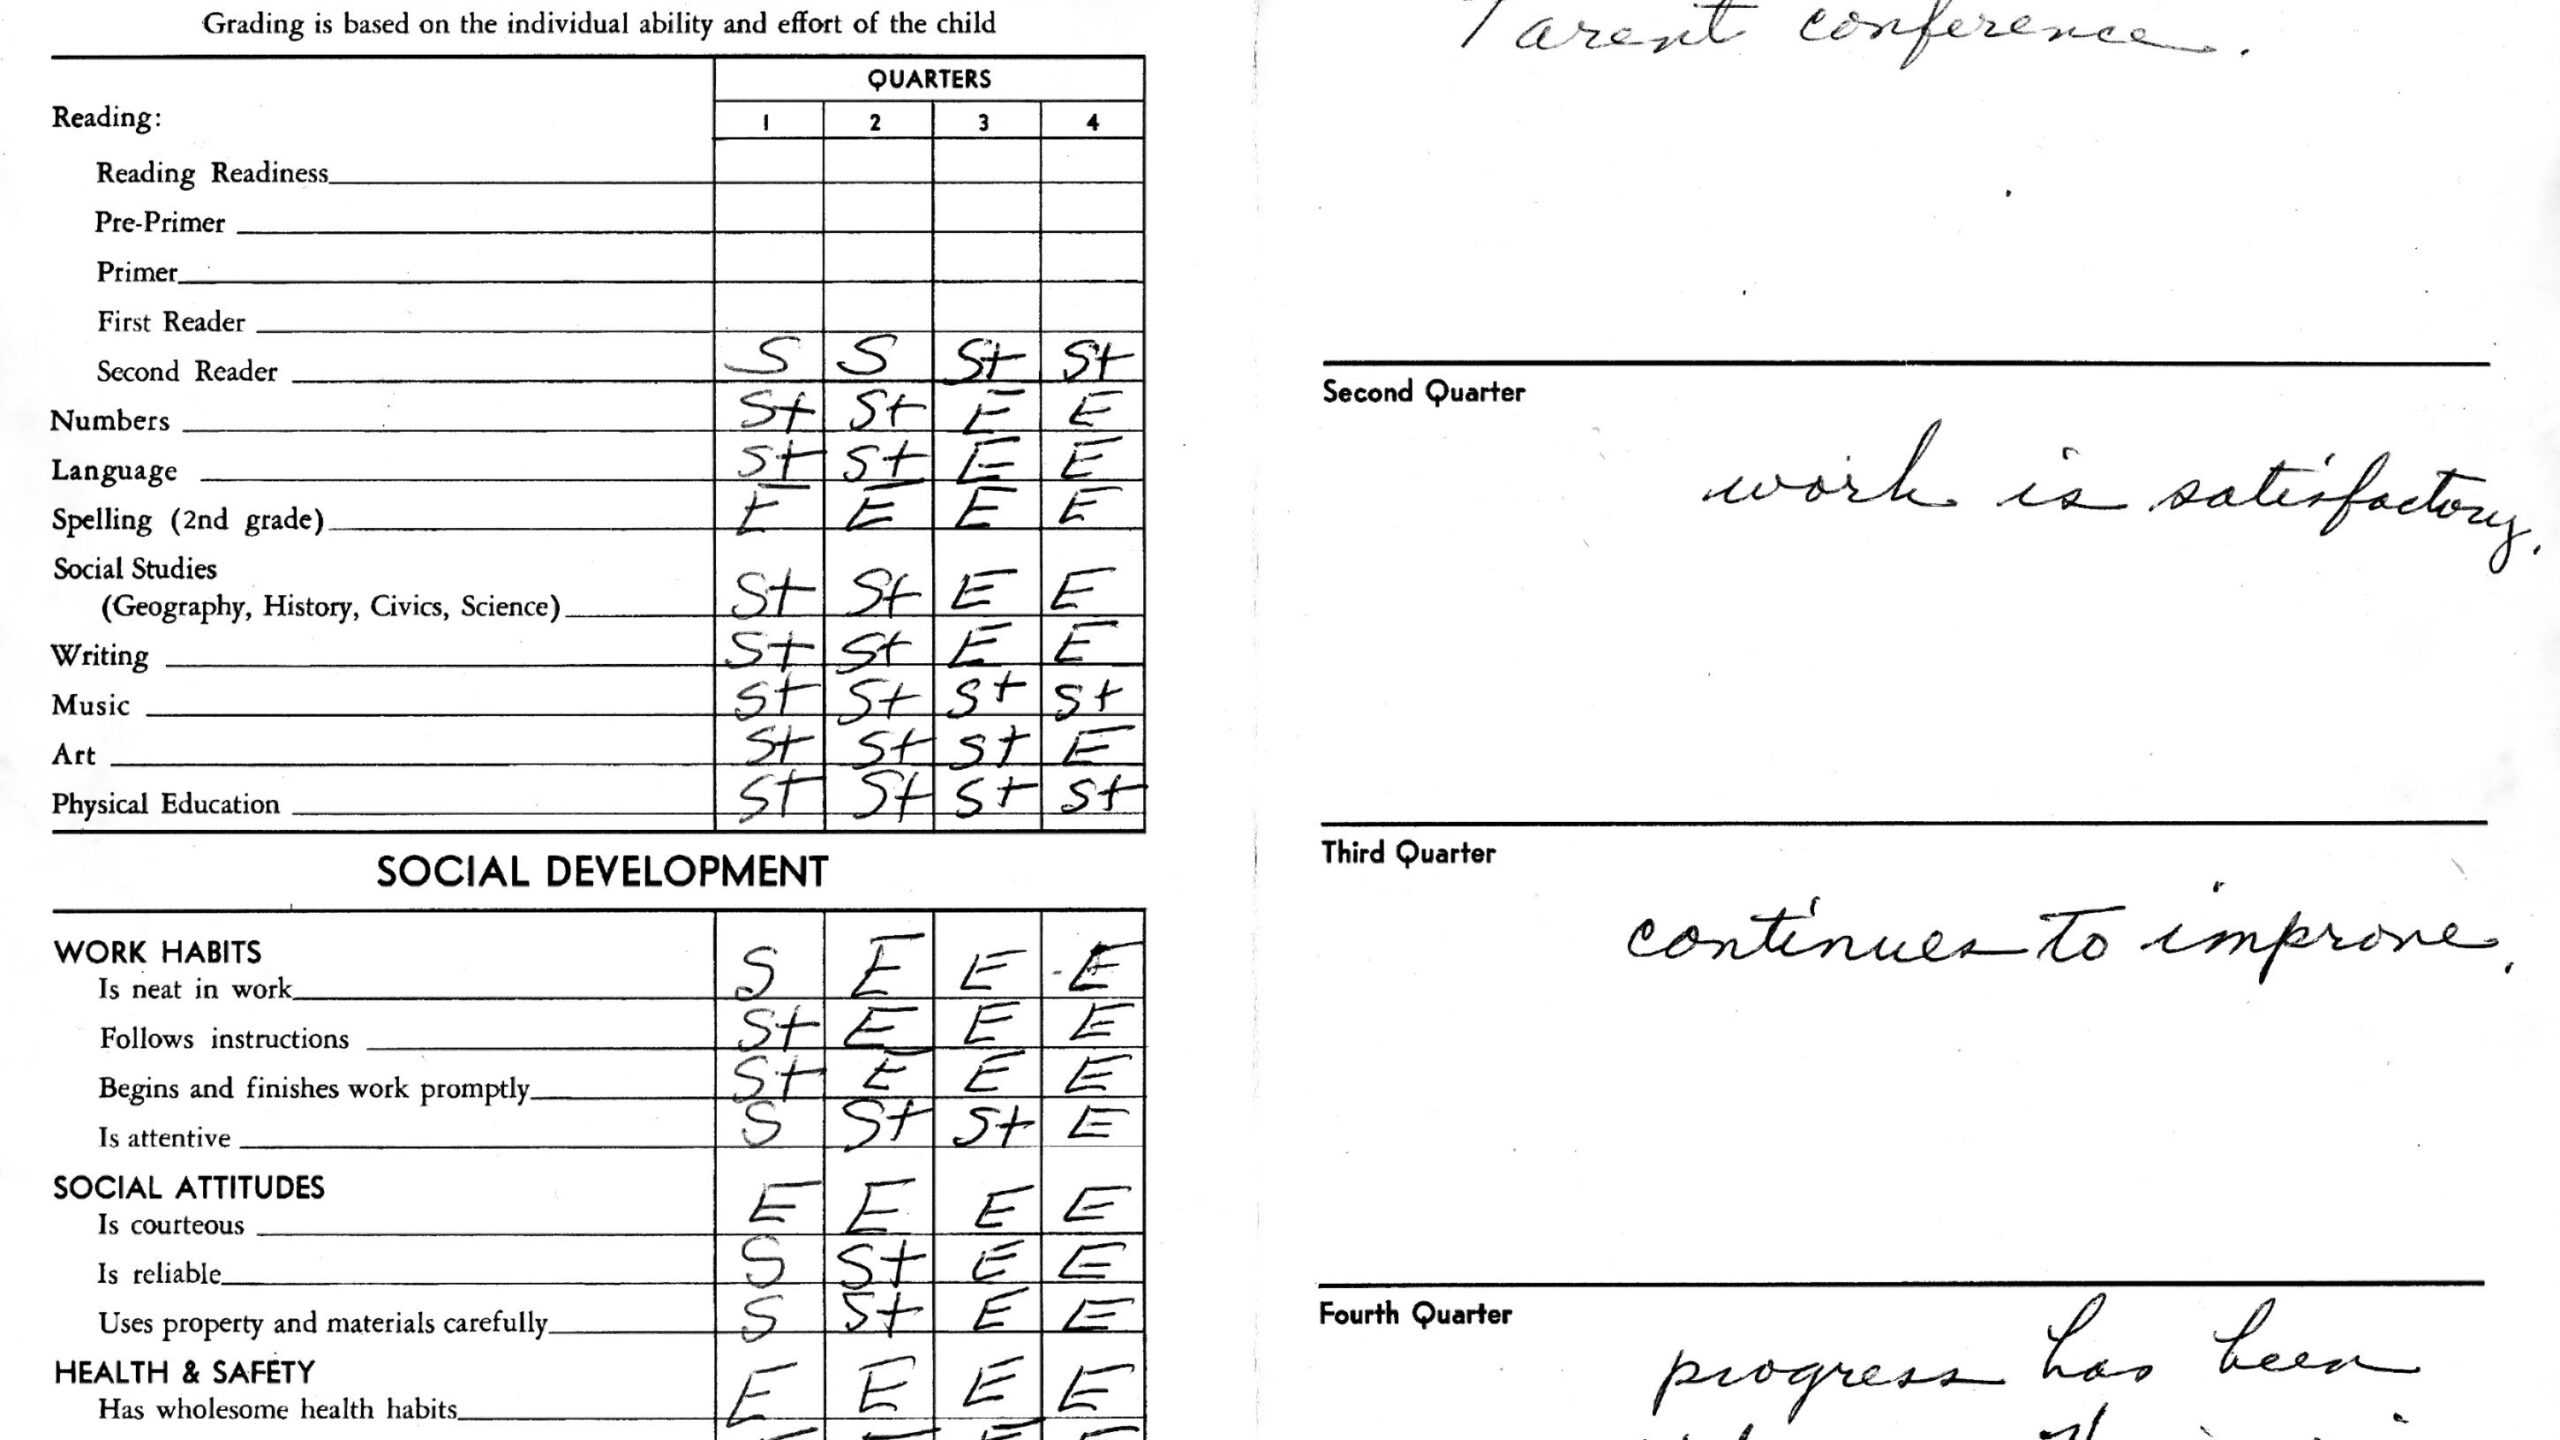 Grading is based on the individual ability and effort of the child
QUARTERS
Reading: 1 2 3 4
Reading Readiness
Pre-Primer
Primer
First Reader
Second Reader S S S+ S+
Numbers S+ S+ E E
Language S+ S+ E E
Spelling (2nd grade) E E E E
Social Studies
(Geography, History, Civics, Science) S+ S+ E E
Writing S+ S+ E E
Music S+ S+ S+ S+
Art S+ S+ S+ E
Physical Education S+ S+ S+ S+
SOCIAL DEVELOPMENT
WORK HABITS
Is neat in work S E E E
Follows instructions S+ E E E
Begins and finishes work promptly S+ E E E
Is attentive S S+ S+ E
SOCIAL ATTITUDES
Is courteous E E E E
Is reliable S S+ E E
Uses property and materials carefully S S+ E E
HEALTH & SAFETY
Has wholesome health habits E E E E
Parent conference.
Second Quarter
work is satisfactory.
Third Quarter
continues to improve.
Fourth Quarter
progress has been